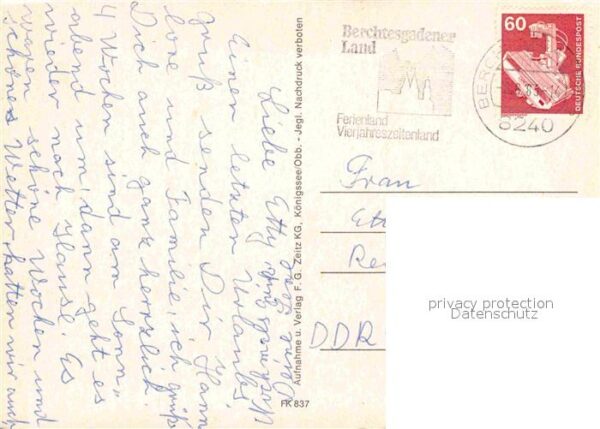 Liebe Etty,
Einen letzten Urlaubs
gruß senden Dir Hann
lore und Familie, ich grüß
Dich auch ganz herzlich.
4 Wochen sind am Sonn-
abend um, dann geht es
wieder nach Hause. Es
waren schöne Wochen und
schönes Wetter hatten wir auch
Aufnahme u. Verlag F. G. Zeitz KG, Königssee/Obb. - Jegl. Nachdruck verboten
FK 837
Berchtesgadener
Land
Ferienland
Vierjahreszeitenland
BERCH
8240
60
DEUTSCHE BUNDESPOST
Frau
DDR
privacy protection
Datenschutz